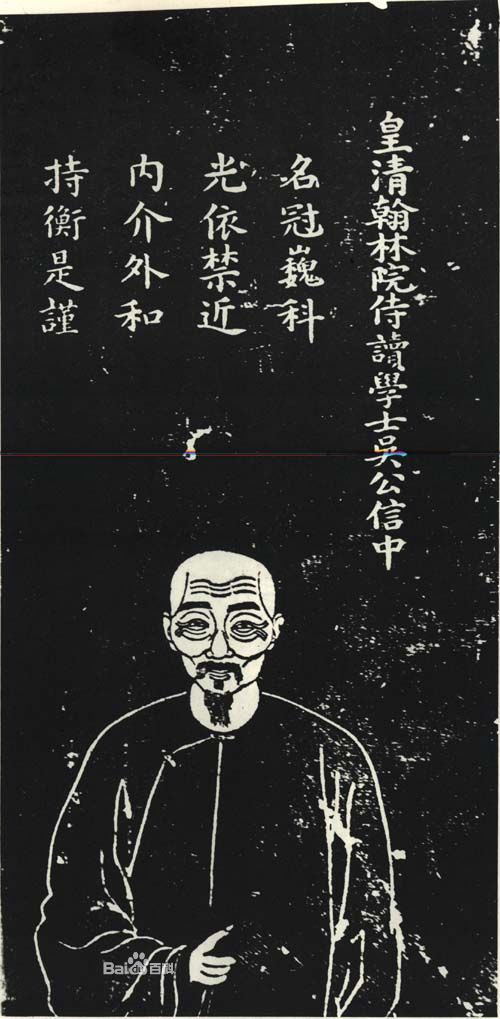 皇清翰林院侍讀學士吳公信中
名冠巍科
光依禁近
內介外和
持衡是謹
Baidu百科